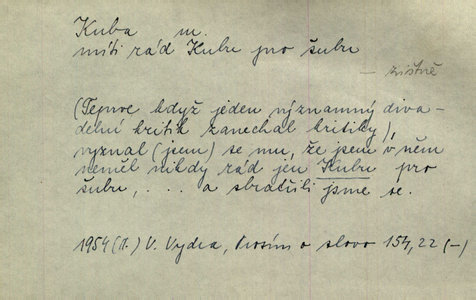 Kuba m.
míti rád Kubu pro šubu
– zištně
(Teprve když jeden významný diva-
delní kritik zanechal kritiky),
vyznal (jsem) se mu, že jsem v něm
neměl nikdy rád jen Kubu pro
šubu, . . . a sbratřili jsme se.
1954 (A.) V. Vydra, Prosím o slovo 154, 22 (–)